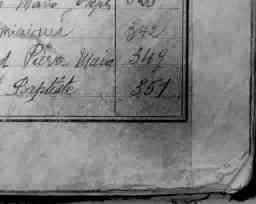 Maria
ominiques 342
d Pierre Maria 349
Baptiste 351